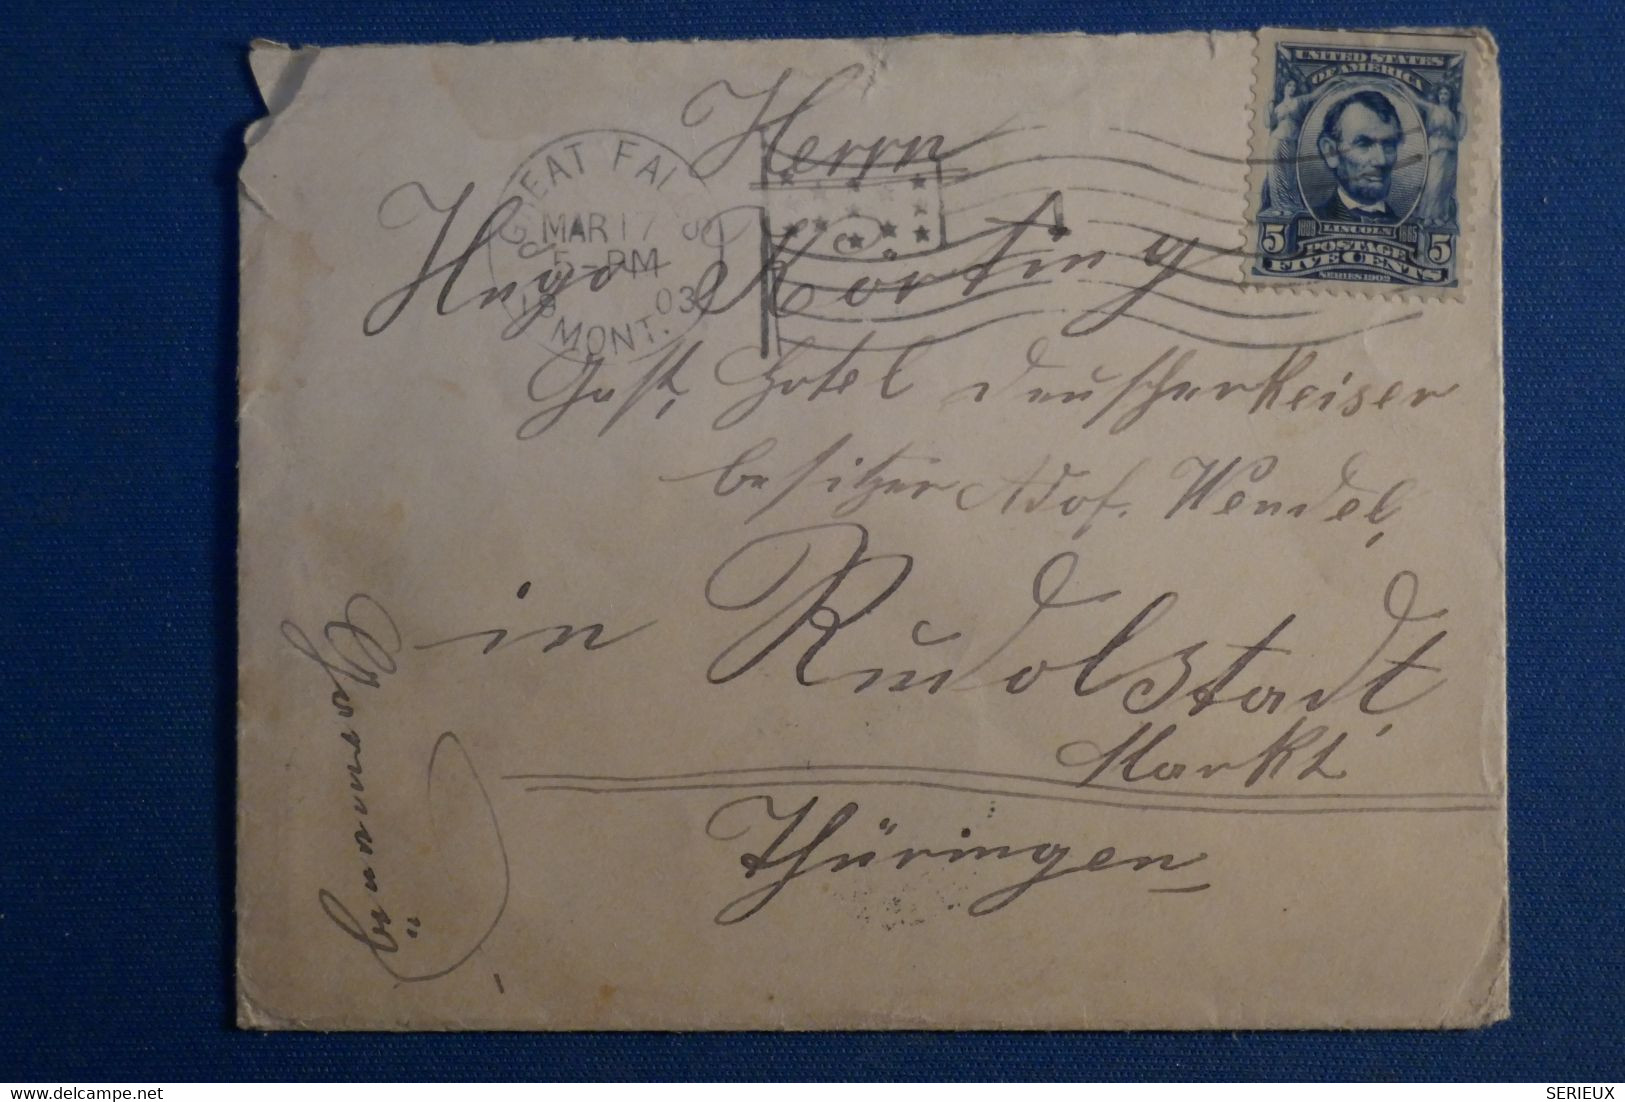 UNITED STATES
OF AMERICA
1809 LINCOLN 1865
5 POSTAGE 5
FIVE CENTS
SERIES 1902
GREAT FALLS
MAR 17
5-PM
19 03
MONT.
Herrn
Hugo Körting
Gast, Hotel Deuscherkeiser
besitzer Adof. Wendel,
in Rudolstadt,
Markt
Thüringen
Germanü
www.delcampe.net
SERIEUX